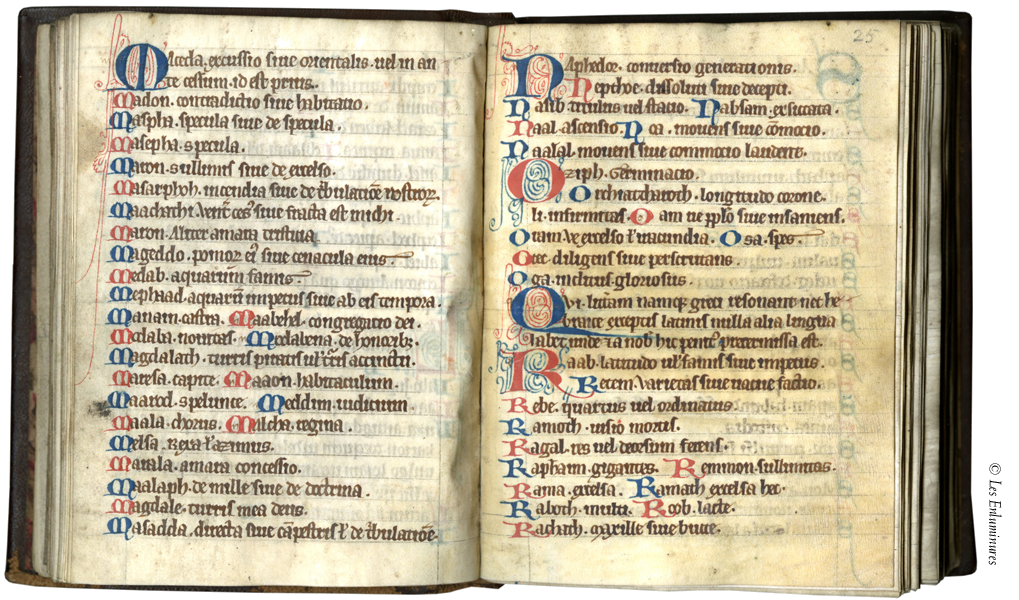 Maceda. excussio siue orientalis. uel in an
te cestum. id est prius.
Madon. contradictio siue habitatio.
Maspha. specula siue de specula.
Masepha. specula.
Maron. sullimis siue de excelso.
Maachathi.
siue fracta est michi.
Maron. Aliter amara tristicia
Mageddo. pomorum eius siue cenacula eius
Medab. aquarum famis
Mephaad. aquarum impetus siue ab eis tempora.
Manaim. castra. Maabehel. congregatio dei.
Melaba. nouitas.
Magdalach. turris
Maresa. capite. Maaon. habitaculum.
Maarod. spelunce. Meddim. iudicium
Maala. chorus. Malcha. regina.
Melsa. rixa uel azimus.
Marala. amara concessio.
Maalaph. de mille siue de doctrina.
Magdale. turris mea deus.
Masadda. directa siue
25
Naphedor. conuersio generationis.
Nepthoe. dissoluti siue decepti.
Nasib. titulus uel statio. Nabsam. exsiccata.
Naal. ascensio. Noa. mouens siue commotio.
Naalal. mouens siue commotio laudente.
Oziph. Germinatio.
Orchiatcharoth. longitudo corone.
Oli. infirmitas. Oam
siue insaniens.
Oram. Ve excelso uel iracundia. Osa. spes
Ocec. diligens siue perscrutans.
Oga. inclitus gloriosus
Qui litteram namque greci resonant nec he
breice exceptis latinis nulla alia lingua
habet unde et a nobis hic penitus pretermissa est.
Raab. latitudo uel famis siue impetus.
Recem. Varietas siue uacue factio.
Rebe. quartus uel ordinatus
Ramoth. uisio mortis.
Ragal. pes uel deorsum ferens.
Raphaim. gigantes. Remmon. sullimitas.
Rama. excelsa. Ramath. excelsa hec.
Raboth. multi. Roob. lacte.
Rachath. maxille siue
© Les Enluminures